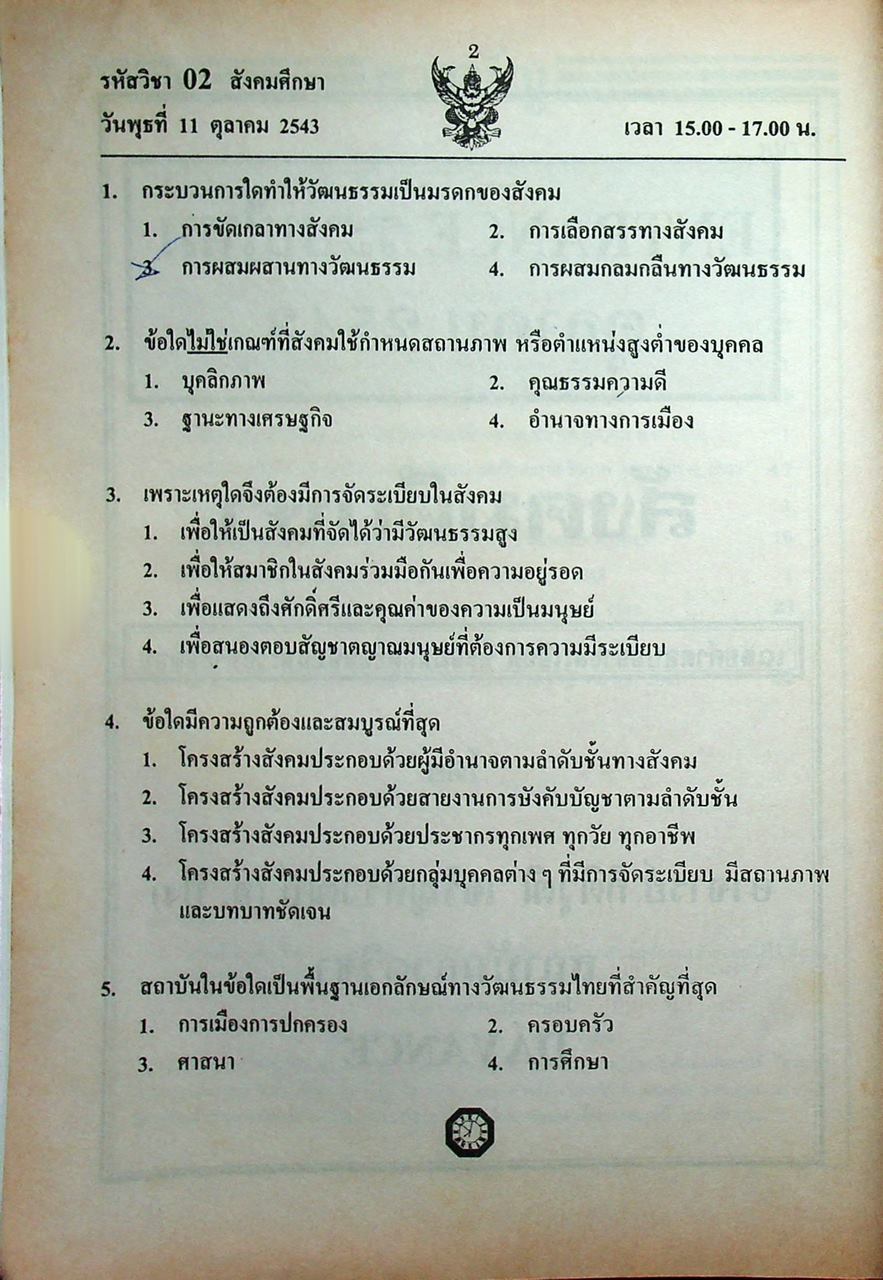 2
รหัสวิชา 02 สังคมศึกษา
วันพุธที่ 11 ตุลาคม 2543 เวลา 15.00 - 17.00 น.
1. กระบวนการใดทำให้วัฒนธรรมเป็นมรดกของสังคม
1. การขัดเกลาทางสังคม 2. การเลือกสรรทางสังคม
3. การผสมผสานทางวัฒนธรรม 4. การผสมกลมกลืนทางวัฒนธรรม
2. ข้อใดไม่ใช่เกณฑ์ที่สังคมใช้กำหนดสถานภาพ หรือตำแหน่งสูงต่ำของบุคคล
1. บุคลิกภาพ 2. คุณธรรมความดี
3. ฐานะทางเศรษฐกิจ 4. อำนาจทางการเมือง
3. เพราะเหตุใดจึงต้องมีการจัดระเบียบในสังคม
1. เพื่อให้เป็นสังคมที่จัดได้ว่ามีวัฒนธรรมสูง
2. เพื่อให้สมาชิกในสังคมร่วมมือกันเพื่อความอยู่รอด
3. เพื่อแสดงถึงศักดิ์ศรีและคุณค่าของความเป็นมนุษย์
4. เพื่อสนองตอบสัญชาตญาณมนุษย์ที่ต้องการความมีระเบียบ
4. ข้อใดมีความถูกต้องและสมบูรณ์ที่สุด
1. โครงสร้างสังคมประกอบด้วยผู้มีอำนาจตามลำดับชั้นทางสังคม
2. โครงสร้างสังคมประกอบด้วยสายงานการบังคับบัญชาตามลำดับชั้น
3. โครงสร้างสังคมประกอบด้วยประชากรทุกเพศ ทุกวัย ทุกอาชีพ
4. โครงสร้างสังคมประกอบด้วยกลุ่มบุคคลต่าง ๆ ที่มีการจัดระเบียบ มีสถานภาพ
และบทบาทชัดเจน
5. สถาบันในข้อใดเป็นพื้นฐานเอกลักษณ์ทางวัฒนธรรมไทยที่สำคัญที่สุด
1. การเมืองการปกครอง 2. ครอบครัว
3. ศาสนา 4. การศึกษา